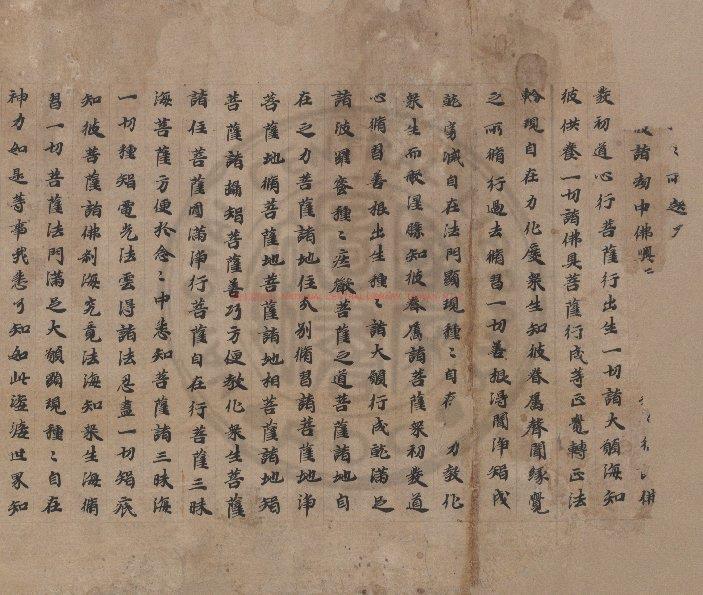 諸劫中佛興
發初道心行菩薩行出生一切諸大願海知
彼供養一切諸佛具菩薩行成等正覺轉正法
輪現自在力化度衆生知彼眷属聲聞緣覺
之所脩行過去脩習一切善根得聞淨智成
就寂滅自在法門顯現種〻自在力教化
衆生而般涅槃知彼眷属諸菩薩衆初發道
心脩習善根出生種〻諸大願行成就滿足
諸波羅蜜種〻莊嚴菩薩之道菩薩諸地自
在之力菩薩諸地住分別脩習諸菩薩地淨
菩薩地脩菩薩地菩薩諸地相菩薩諸地智
菩薩諸攝智菩薩善巧方便教化衆生菩薩
諸住菩薩圓滿淨行菩薩自在行菩薩三昧
海菩薩方便於念〻中悉知菩薩諸三昧海
一切種智電光法雲得諸法忍盡一切智底
知彼菩薩諸佛刹海究竟法海知衆生海脩
習一切菩薩法門滿足大願顯現種〻自在
神力如是等事我悉了知如此娑婆世界知